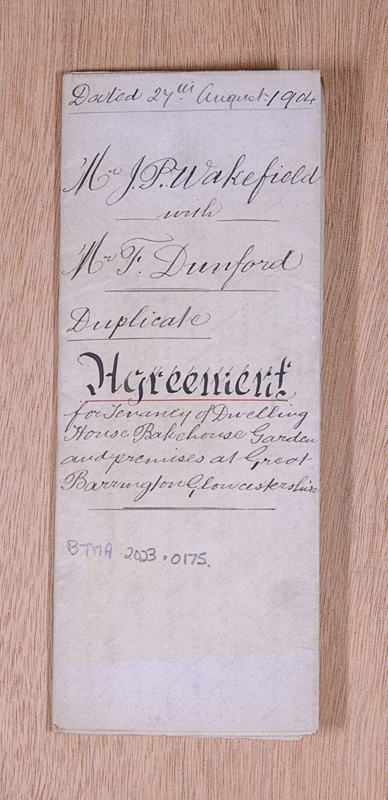 Dated 27th August 1904
Mr J. P. Wakefield
with
Mr F. Dunford
Duplicate
Agreement
for Tenancy of Dwelling
House Bakehouse Garden
and premises at Great
Barrington Gloucestershire
BTMA 2023.0175.